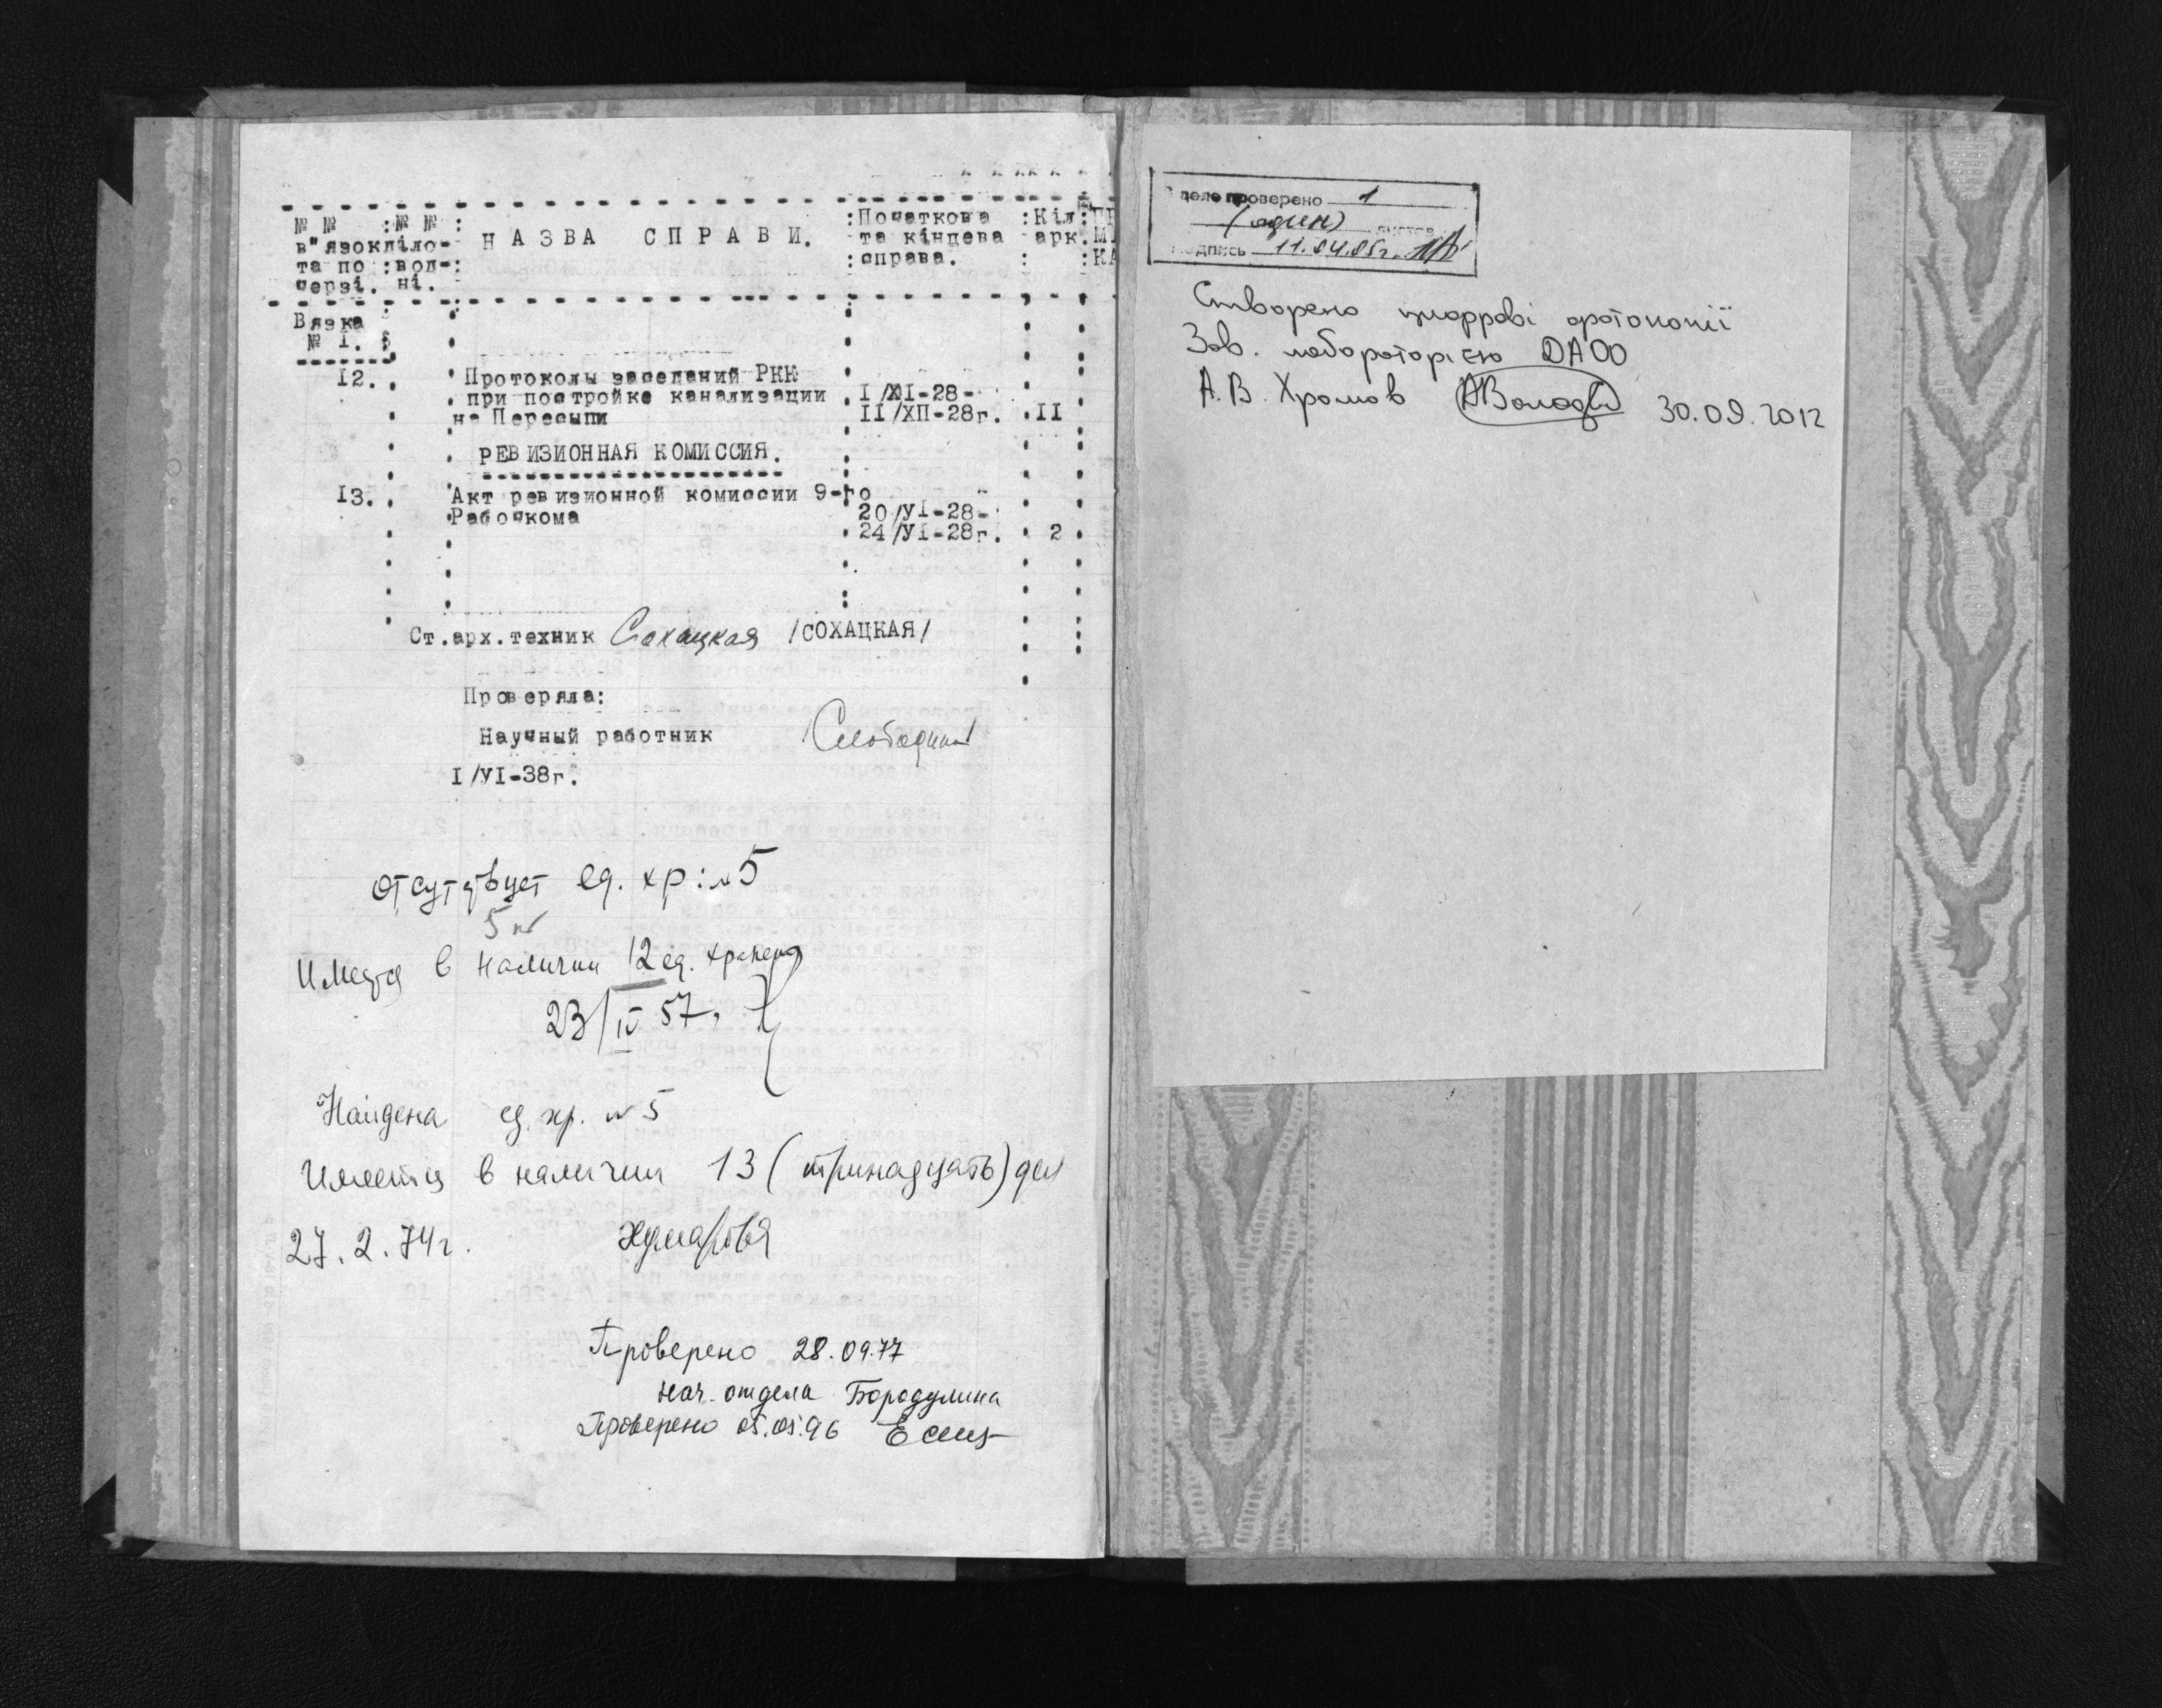 № № :№ № : :Початкова :Кіл:
в"язокпіло- НАЗВА СПРАВИ. та кінцева арк.
та по :вод-: :справа. : :
черзі. ні.
Вязка
№ I.
I2. Протоколы заседаний РКК
при постройке канализации I/XI-28-
на Пересыпи II/XII-28г. II
РЕВИЗИОННАЯ КОМИССИЯ.
I3. Акт ревизионной комиссии 9-го
Рабочкома 20/УI-28-
24/УI-28г. 2
Ст.арх.техник Сохацкая /СОХАЦКАЯ/
Проверяла:
Научный работник
I/УI-38г.
отсутствует ед. хр: № 5
Имеется в наличии 12 ед. хранен
23/IV 57,
Найдена ед. хр. № 5
Имеется в наличии 13 (тринадцать) дел
27.2.74г.
Проверено 28.09.77
нач. отдела Бородулина
Проверено 05.05.96
деле проверено 1
(один) листов
подпись 11.04.05г.
Створено цифрові фотокопії
Зав. лабораторією ДАОО
А.В. Хромов 30.09.2012